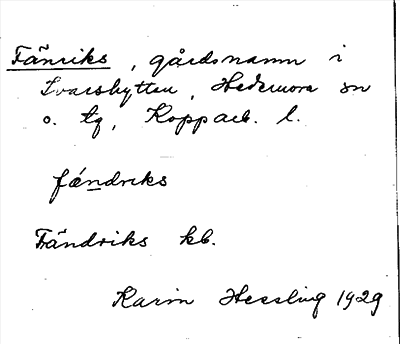 Fänriks, gårdsnamn i
Ivarshyttan, Hedemora sn
o. tg, Kopparb. l.
fä́ndreks
Fändriks kb.
Karin Hessling 1929